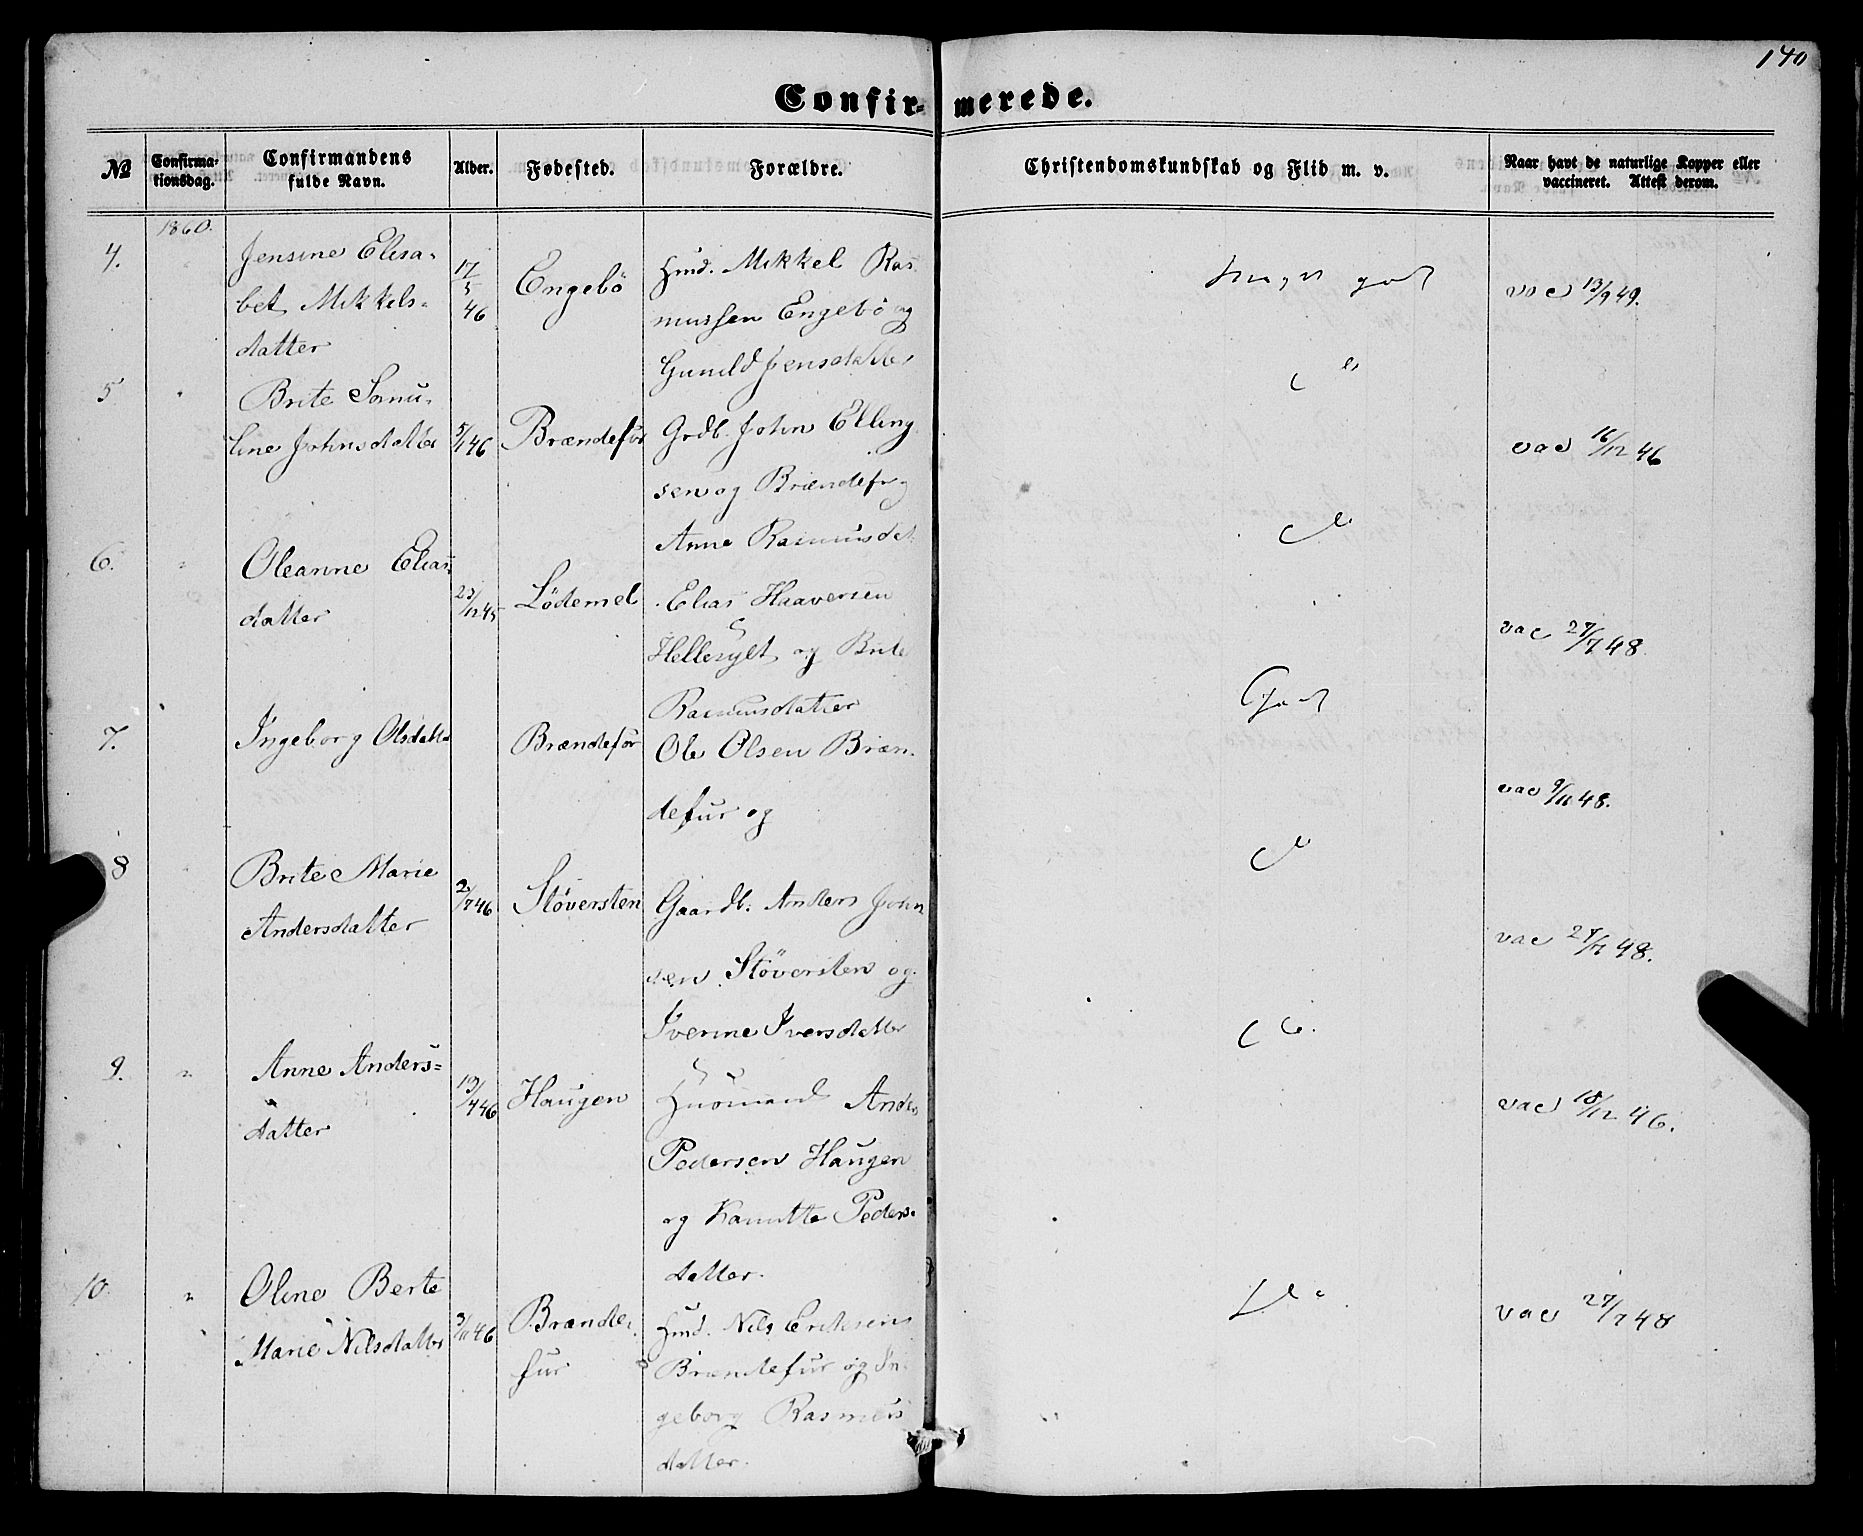 140
Confir- merede.
No
Confirma-
tionsdag.
Confirmandens
fulde Navn.
Alder.
Fødested.
Forældre.
Christendomskundskab og Flid m. v.
Naar havt de naturlige Kopper eller
vaccineret. Attest derom.
1860.
4.
Jensine Elisa-
bet Mikkels-
datter
17/5 46
Engebö
Hmd. Mikkel Ras
mussen Engebö og
Gunild Jensdatter
meget godt
vac 13/9 49.
5
"
Brite Samu-
line Johnsdatter
5/11 46
Brændefur
Grdb. John Elling
sen og Brændefur
Anne Rasmusdat
vac 16/12 46
6.
"
Oleanne Elias
datter
23/12 45
Lödemel
Elias Haaversen
Hellesylt og Brite
Rasmusdatter
vac 27/7 48
7.
Ingeborg Olsdatter
Brændefur
Ole Olsen Bræn-
defur og
Godt
vac 9/11 48.
8
"
Brite Marie
Andersdatter
2/7 46
Stöversten
Gaardb. Anders John
sen Stöversten og
Iverine Iversdatter
vac 27/7 48.
9.
"
Anne Anders-
datter
19/4 46
Haugen
Huusmand Anders
Pedersen Haugen
og Kanutte Peders-
datter.
vac 18/12 46.
10
"
Oline Berte
Marie Nilsdatter
3/11 46
Brænde-
fur
Hmd. Nils Eriksen
Brændefur og In
geborg Rasmus
datter.
vac 27/7 48